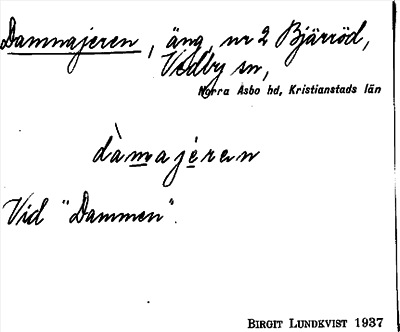 Dammajeren, äng, nr 2 Bjärröd,
Vedby sn,
Norra Åsbo hd, Kristianstads län
dàmajèren
Vid "Dammen".
BIRGIT LUNDKVIST 1937